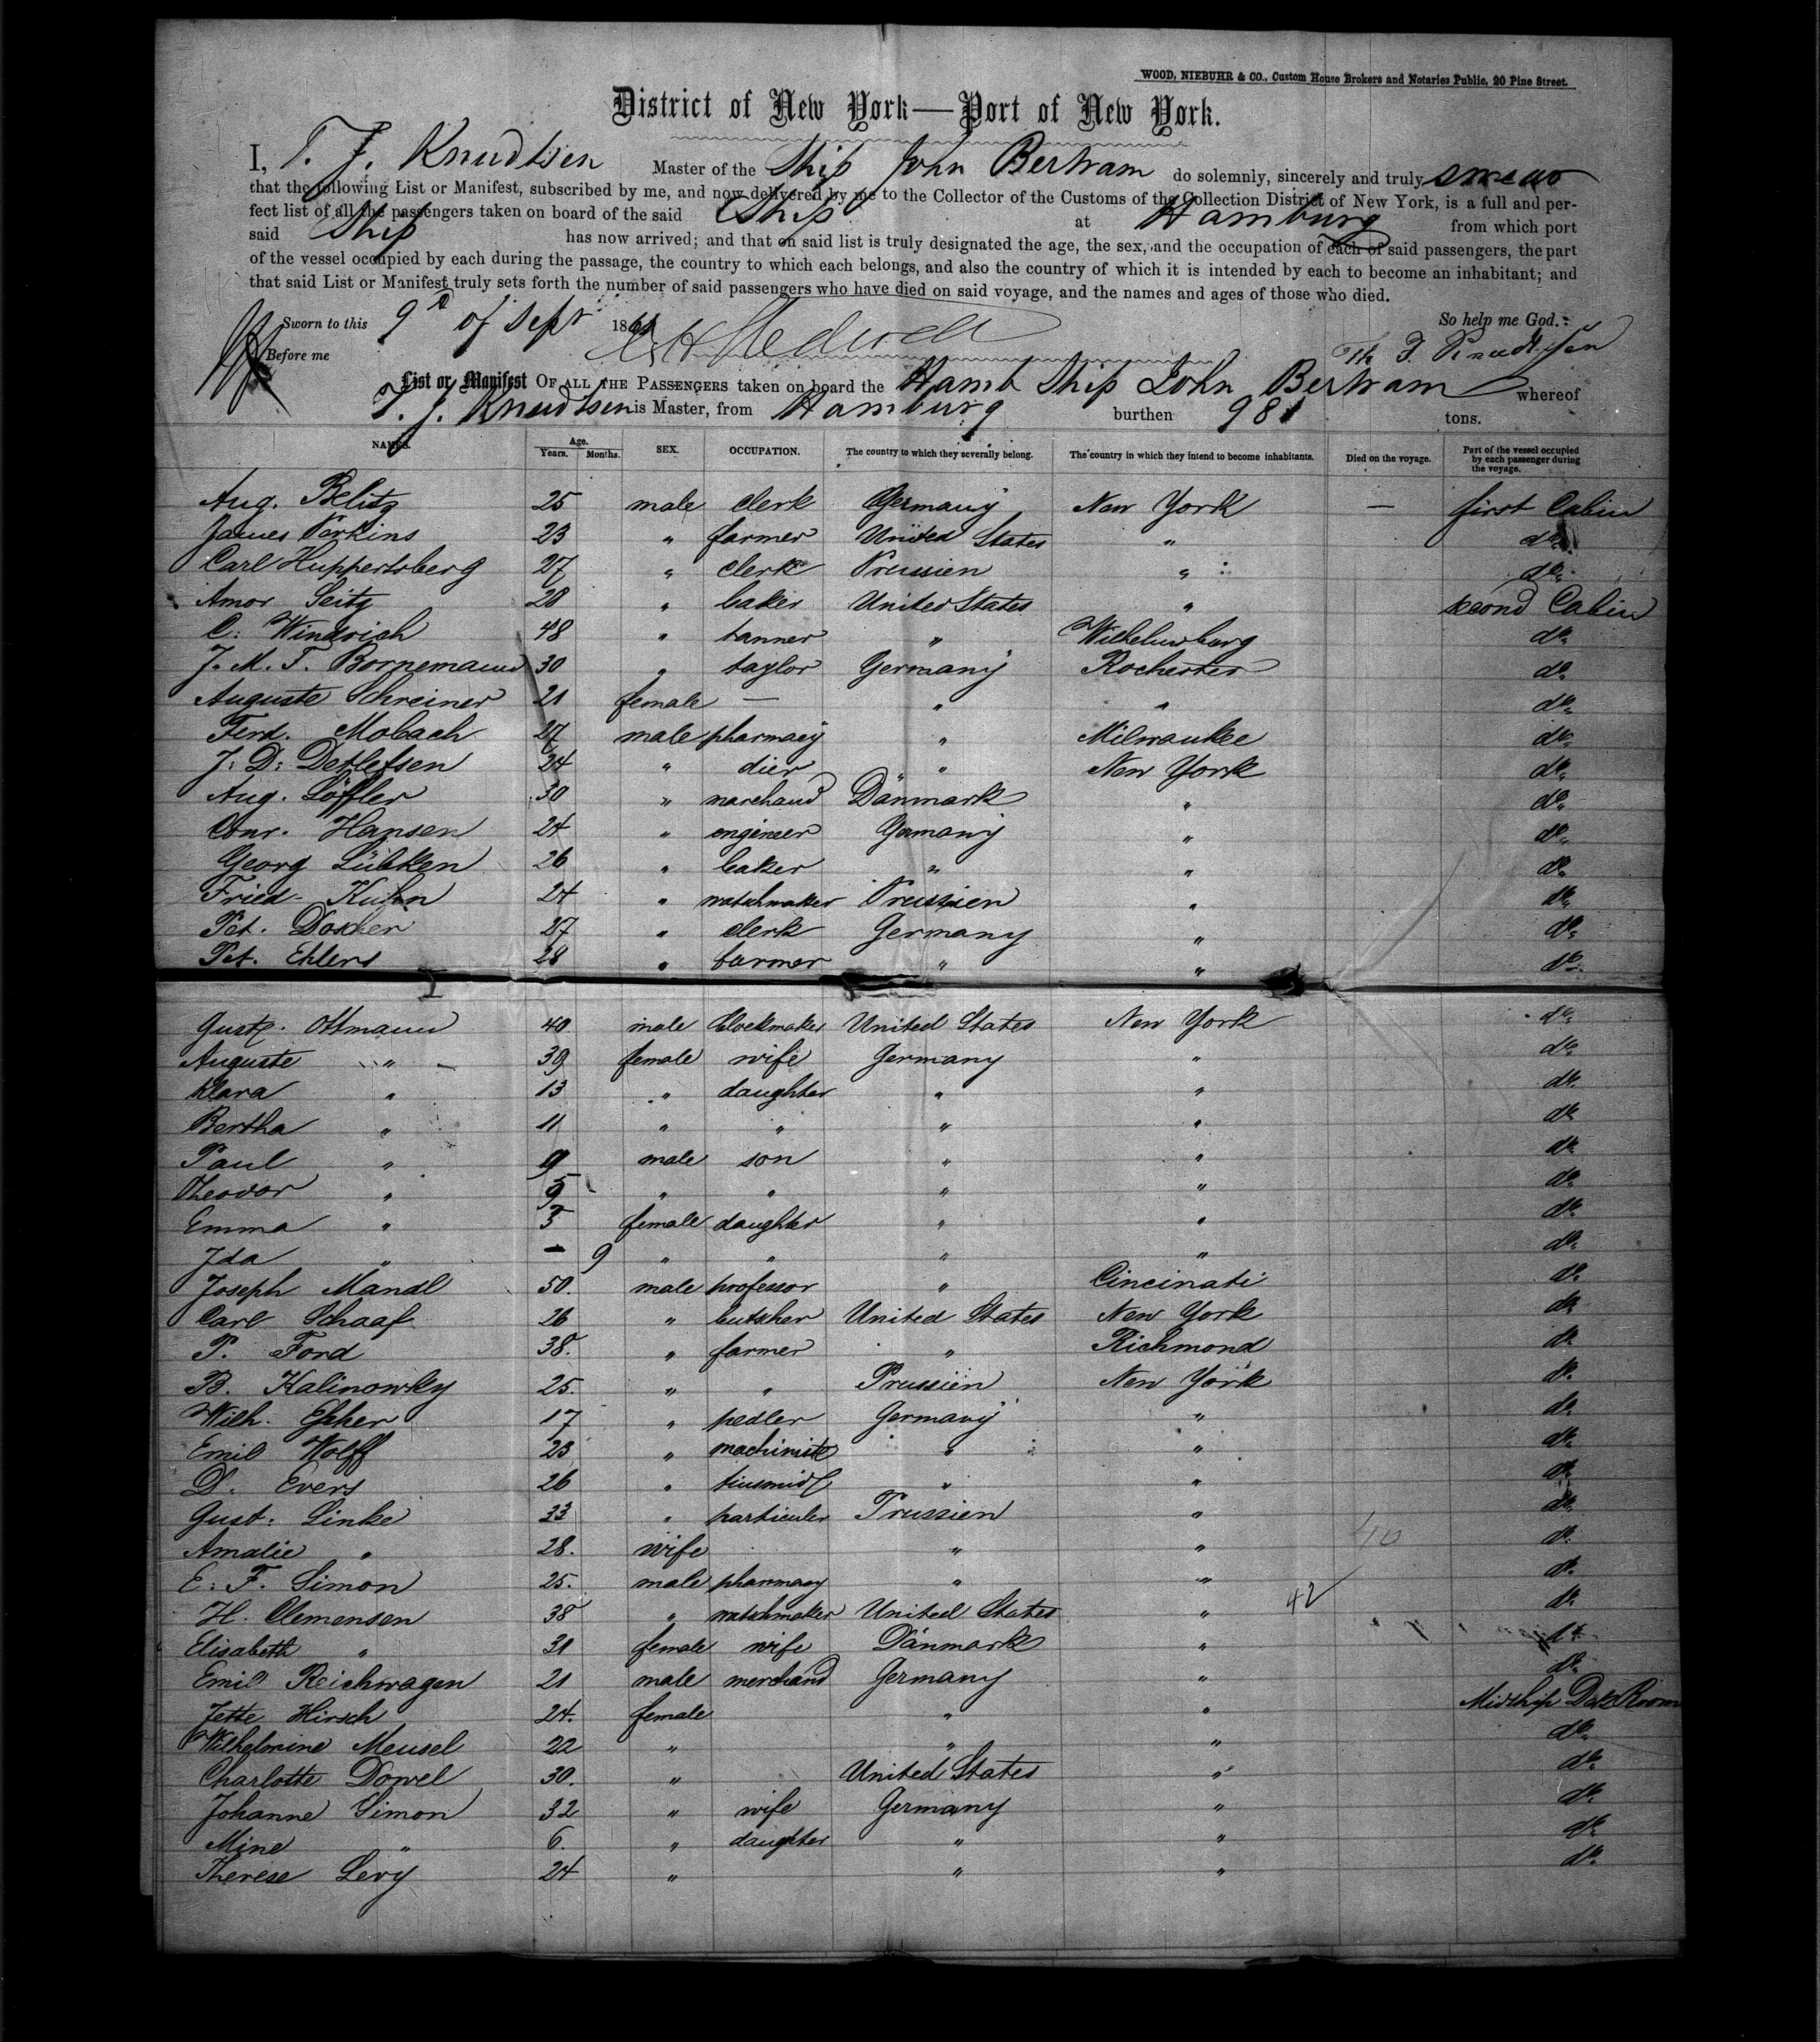 WOOD, NIEBUHR & CO., Custom House Brokers and Notaries Public, 20 Pine Street.
District of New York—Port of New York.
I, T. J. Knudtsen Master of the Ship John Bertram do solemnly, sincerely and truly swear
that the following List or Manifest, subscribed by me, and now delivered by me to the Collector of the Customs of the Collection District of New York, is a full and per-
fect list of all the passengers taken on board of the said Ship at Hamburg from which port
said Ship has now arrived; and that on said list is truly designated the age, the sex, and the occupation of each of said passengers, the part
of the vessel occupied by each during the passage, the country to which each belongs, and also the country of which it is intended by each to become an inhabitant; and
that said List or Manifest truly sets forth the number of said passengers who have died on said voyage, and the names and ages of those who died.
Sworn to this 9th of Sept 186 So help me God.
Before me Knudtsen
List or Manifest OF ALL THE PASSENGERS taken on board the Hamb Ship John Bertram whereof
T. J. Knudtsen is Master, from Hamburg burthen 981 tons.
NAMES. Age. Years. Months. SEX. OCCUPATION. The country to which they severally belong. The country in which they intend to become inhabitants. Died on the voyage. Part of the vessel occupied by each passenger during the voyage.
Aug. Belitz 25 male clerk Germany New York — first Cabin
James Perkins 23 " farmer United States " do
Carl Huppertsberg 27 " clerk Prussien " do
Amor Seitz 28 " baker United States " second Cabin
C. Windrich 48 " tanner " Wilhelmsburg do
J. M. T. Bornemann 30 " taylor Germany Rochester do
Auguste Schreiner 21 female — " " do
Ferd. Mobach 27 male pharmacy " Milwaukee do
J. D. Detlefsen 24 " dier " New York do
Aug. Löffler 30 " marchand Dänmark " do
Conr. Hansen 24 " engineer Germany " do
Georg Lübken 26 " baker " " do
Fried. Kuhn 24 " watchmaker Prussien " do
Pet. Doscher 27 " clerk Germany " do
Pet. Ehlers 28 " farmer " " do
Gust. Ottmann 40 male Clockmaker United States New York do
Auguste " 39 female wife Germany " do
Klara " 13 " daughter " " do
Bertha " 11 " " " " do
Paul " 9 male son " " do
Theodor " 5 " " " " do
Emma " 3 female daughter " " do
Ida " — 9 " " " " do
Joseph Mandl 50. male professor " Cincinati do
Carl Schaaf 26 " butsher United States New York do
P. Ford 38. " farmer " Richmond do
B. Kalinowky 25. " " Prussien New York do
Wilh. 17 " pedler Germany " do
Emil Wolff 23 " machiniste " " do
D. Evers 26 " tinsmid " " do
Gust. Linke 33 " particuler Prussien " do
Amalie " 28. wife " " 40 do
E. F. Simon 25. male pharmacy " " do
H. Clemensen 38 " watchmaker United States " 42 do
Elisabeth " 31 female wife Dänmark " do
Emil Reichwagen 21 male merchand Germany " do
Jette Hirsch 24. female " " Midship Deck Room
Wilhelmine Meusel 22 " " " do
Charlotte Dowel 30. " United States " do
Johanne Simon 32 " wife Germany " do
Mine " 6. " daughter " " do
Therese Levy 24 " " " do